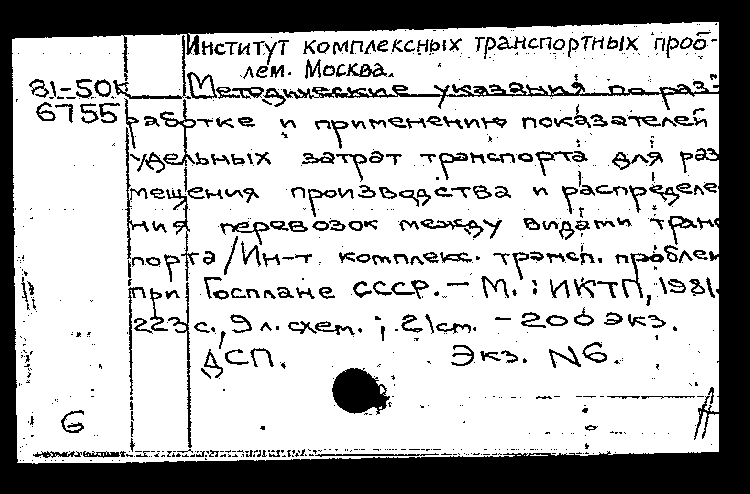 Институт комплексных транспортных проб-
лем. Москва.
81-50к Методические указания по раз-
6755 работке и применению показателей
удельных затрат транспорта для раз
мещения производства и распределе
ния перевозок между видами транс
порта/Ин-т комплекс. трансп. проблем
при Госплане СССР. – М.: ИКТП, 1981.
223 с., 9 л. схем.; 21 см. – 200 экз.
ДСП. Экз. N6.
6
А